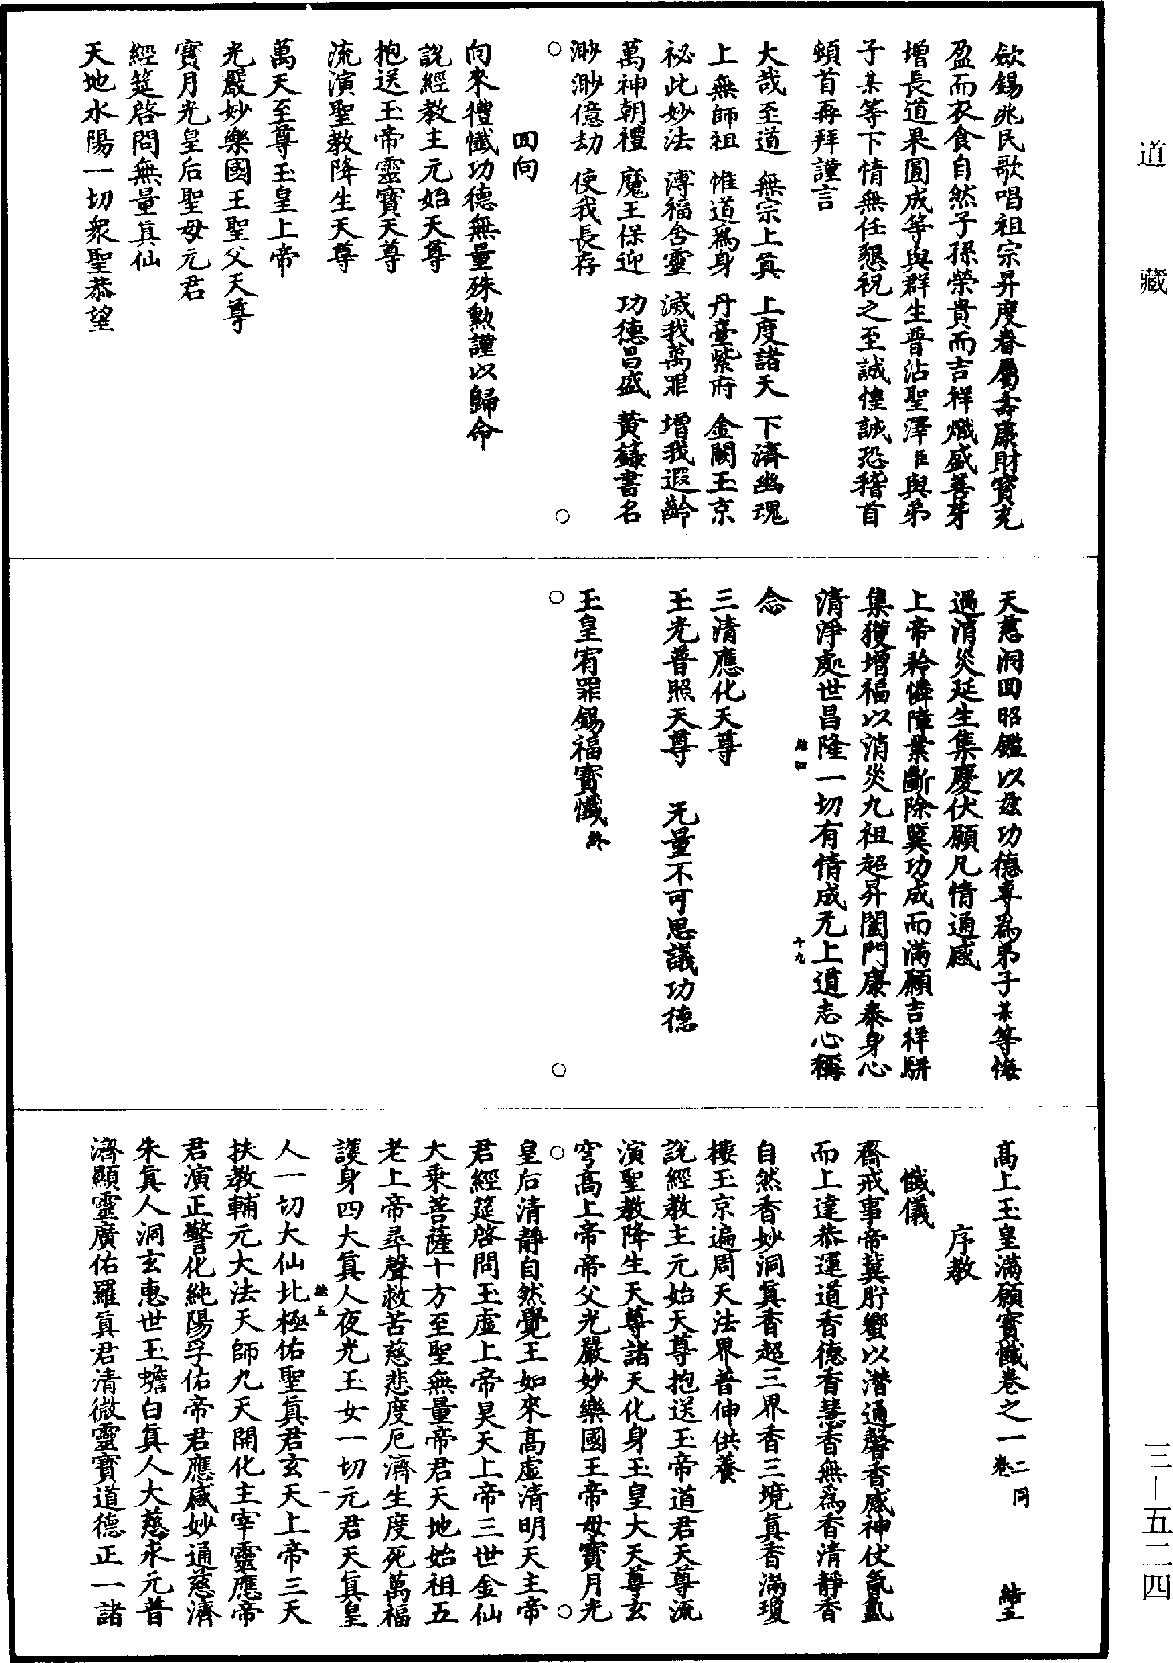 道藏
歛錫兆民歌唱祖宗昇度眷屬壽康財寶充
盈而衣食自然子孫榮貴而吉祥熾盛善芽
增長道果圓成等與群生普沾聖澤臣與弟
子某等下情無任懇祝之至誠惶誠恐稽首
頓首再拜謹言
大哉至道 無宗上真 上度諸天 下濟幽魂
上無師祖 惟道為身 丹臺紫府 金闕玉京
祕此妙法 溥福含靈 滅我萬罪 增我遐齡
萬神朝禮 魔王保迎 功德昌盛 黃籙書名
渺渺億劫 使我長存
回向
向來禮懺功德無量殊勲謹以歸命
說經教主元始天尊
抱送玉帝靈寶天尊
流演聖教降生天尊
萬天至尊玉皇上帝
光嚴妙樂國王聖父天尊
寶月光皇后聖母元君
經筵啓問無量真仙
天地水陽一切衆聖恭望
天慈洞回昭鑑以兹功德專為弟子某等悔
過消災延生集慶伏願凡情通感
上帝矜憐障業斷除冀功成而滿願吉祥駢
集獲增福以消災九祖超昇闔門康泰身心
清淨處世昌隆一切有情成无上道志心稱
念
三清應化天尊
玉光普照天尊 无量不可思議功德
玉皇宥罪錫福寶懺終
十九
高上玉皇滿願寶懺卷之一 二卷同
懺儀
序教
齋戒事帝冀肸蠁以潛通馨香感神伏氤氳
而上達恭運道香德香慧香無為香清靜香
自然香妙洞真香超三界香三境真香滿瓊
樓玉京遍周天法界普伸供養
說經教主元始天尊抱送玉帝道君天尊流
演聖教降生天尊諸天化身玉皇大天尊玄
穹高上帝帝父光嚴妙樂國王帝母寶月光
皇后清靜自然覺王如來高虛清明天主帝
君經筵啓問玉虛上帝昊天上帝三世金仙
大乘菩薩十方至聖無量帝君天地始祖五
老上帝尋聲救苦慈悲度厄濟生度死萬福
護身四大真人夜光玉女一切元君天真皇
人一切大仙北極佑聖真君玄天上帝三天
扶教輔元大法天師九天開化主宰靈應帝
君演正警化純陽孚佑帝君應感妙通慈濟
朱真人洞玄惠世玉蟾白真人大慈永元普
濟顯靈廣佑羅真君清微靈寶道德正一諸
三—五二四